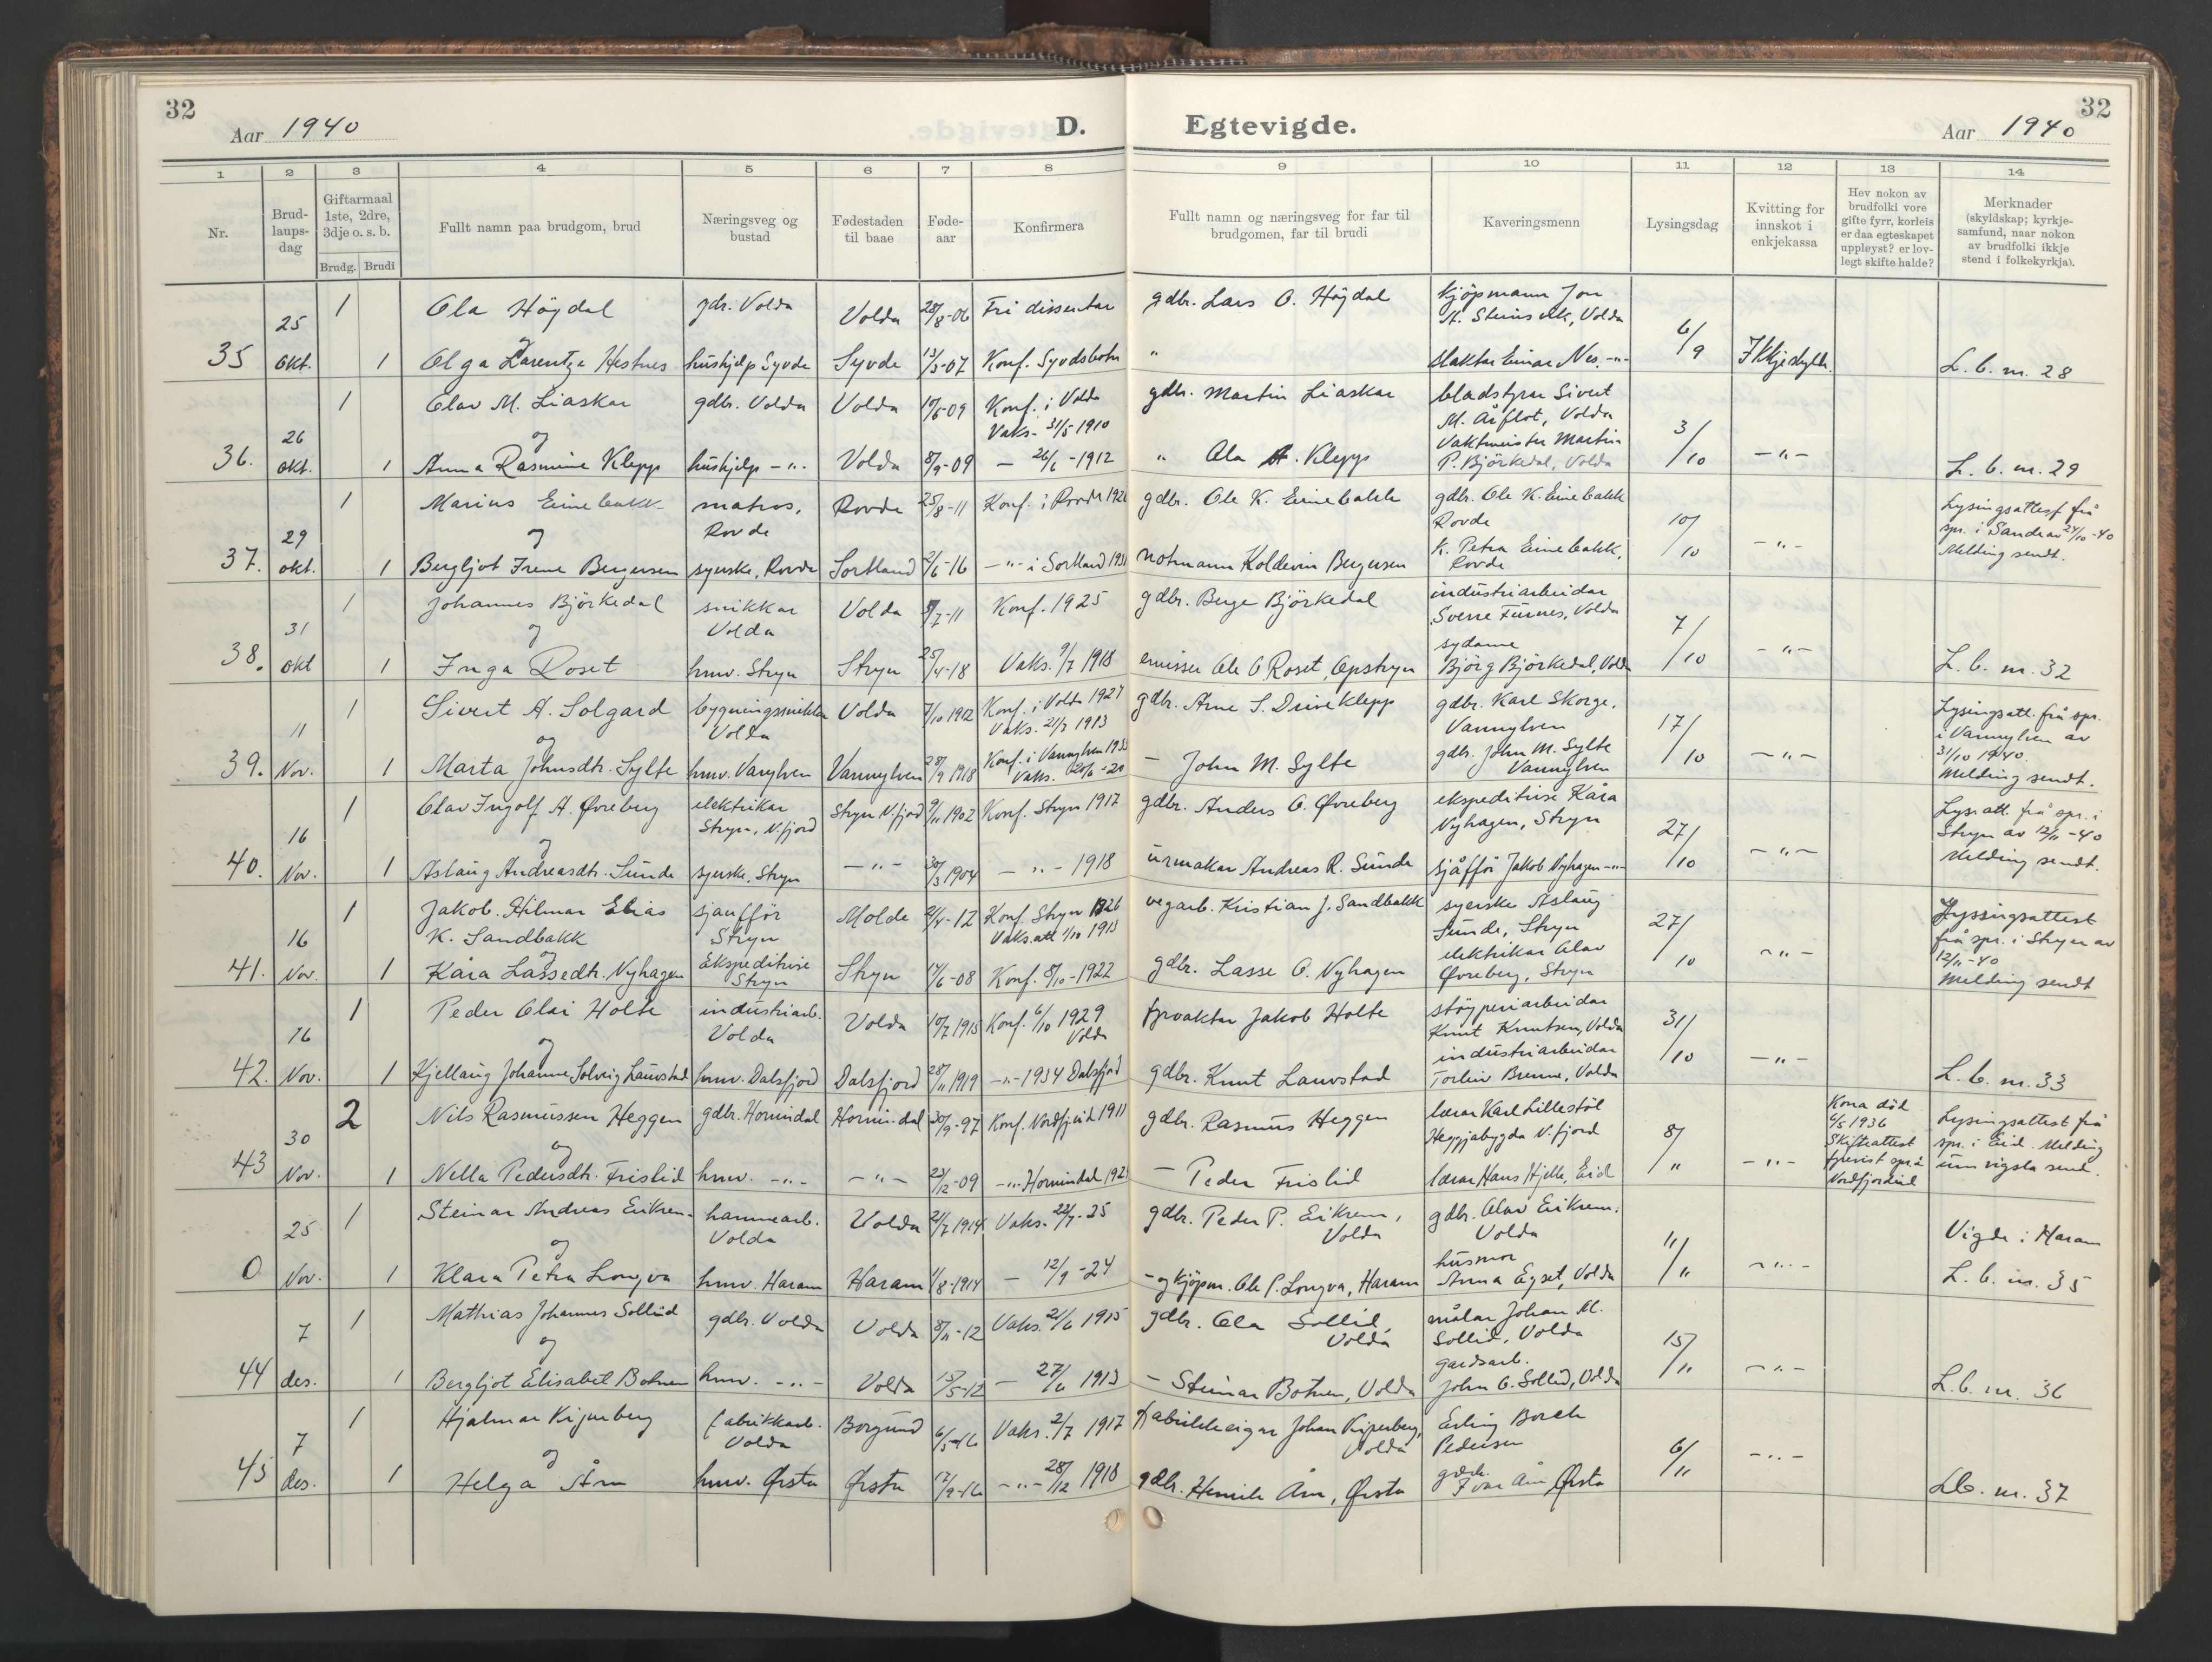 32
Aar 1940
D.
Egtevigde.
Aar 1940
32
1 2 3 4 5 6 7 8 9 10 11 12 13 14
Nr.
Brud-
laups-
dag
Giftarmaal
1ste, 2dre,
3dje o. s. b.
Brudg. Brudi
Fullt namn paa brudgom, brud
Næringsveg og
bustad
Fødestaden
til baae
Føde-
aar
Konfirmera
Fullt namn og næringsveg for far til
brudgomen, far til brudi
Kaveringsmenn
Lysingsdag
Kvitting for
innskot i
enkjekassa
Hev nokon av
brudfolki vore
gifte fyrr, korleis
er daa egteskapet
uppløyst? er lov-
legt skifte halde?
Merknader
(skyldskap; kyrkje-
samfund, naar nokon
av brudfolki ikkje
stend i folkekyrkja).
35
25
Okt.
1
Ola Höydal
gdr. Volda
Volda
28/8-06
Fri dissentar
gdbr. Lars O. Höydal
Kjöpmann Jon
Volda
6/9
og
1
Olga Larentze Hestnes
hushjelp Syvde
Syvde
13/3-07
Konf. Syvdsbotn
"
slaktar Einar Nes, -"-
L. b. nr. 28
36.
26
Okt.
1
Olav M. Liaskar
gdbr. Volda
Volda
10/5-09
Konf. i Volda
Vaks. 31/5 1910
gdbr. Martin Liaskar
bladstyrar Sivert
M. Årflot, Volda
3/10
-"-
og
1
Anna Rasmine Klepp
hushjelp -"-
Volda
8/9-09
— 26/6 -1912
" Ola A. Klepp
Vaktmeister Martin
P. Björkedal, Volda
L. b. nr. 29
37.
29
okt.
1
Marius Einebakk
matros,
Rovde
Rovde
25/8-11
Konf. i Rovde
gdbr. Ole K. Einebakk
gdbr. Ole K. Einebakk
Rovde
10/10
-"-
Lysingsattest frå
spr. i Sande av 24/10-40
Melding sendt.
og
1
Bergljot Irene Bergersen
syerske, Rovde
Sortland
2/6-16
-"- i Sortland
notmann Koldevin Bergersen
K. Petra Einebakk,
Rovde
38.
31
okt
1
Johannes Björkedal
snikkar
Volda
Volda
Konf. 1925
gdbr. Berge Björkedal
industriarbeidar
Sverre Furnes, Volda
7/10
-"-
og
1
Inga Roset
hmv. Stryn
Stryn
25/4-18
Vaks. 9/7 1918
emissær Ole O Roset, Opstryn
sydame
Björg Björkedal, Volda
L. b. nr. 32
39.
11
Nov.
1
Sivert A. Solgard
bygningssnikkar
Volda
Volda
7/10 1912
Konf. i Volda 1927
Vaks. 21/7 1913
gdbr. Arne S. Driveklepp
gdbr. Karl Skorge,
Vannylven
17/10
-"-
Lysingsatt. frå spr.
i Vannylven av
31/10 1940.
Melding sendt.
og
1
Marta Johnsdtr. Sylte
hmv. Vanylven
Vannylven
28/9 1918
Konf. i Vannylven
— John M. Sylte
gdbr. John M. Sylte
Vannylven
40.
16
Nov.
1
Olav Ingolf A. Øvreberg
elektrikar
Stryn, N.fjord
Stryn N.fjord
9/11 1902
Konf. Stryn 1917
gdbr. Anders O. Øvreberg
ekspeditrise Kåra
Nyhagen, Stryn
27/10
-"-
Lys.att. frå spr. i
Stryn av 12/11-40
Melding sendt.
og
1
Aslaug Andreasdtr. Sunde
syerske, Stryn
-"-
30/3 1904
-"- 1918
urmakar Andreas R. Sunde
sjåfför Jakob Nyhagen -"-
41.
16
Nov.
1
Jakob Hilmar Elias
K. Sandbakk
sjauffør
Stryn
Molde
Konf. Stryn 1926
Vaks.att 1/10 1913
vegarb. Kristian J. Sandbakk
syerske Aslaug
Sunde, Stryn
27/10
-"-
Lysingsattest
frå spr. i Stryn av
12/11-40
Melding sendt
og
1
Kåra Lassedtr. Nyhagen
Ekspeditrise
Stryn
Stryn
17/6-08
Konf. 8/10-1922
gdbr. Lasse O. Nyhagen
elektrikar Olav
Øvreberg, Stryn
42.
16
Nov.
1
Peder Olai Holte
industriarb.
Volda
Volda
10/7 1915
Konf. 6/10 1929
Volda
Jakob Holte
støyperiarbeidar
Knut Knutsen, Volda
31/10
-"-
og
1
Kjellaug Johanne Solveig Lauvstad
hmv. Dalsfjord
Dalsfjord
28/11 1919
-"- 1934 Dalsfjord
gdbr. Knut Lauvstad
industriarbeidar
Torleiv Brenne, Volda
L. b. nr. 33
43
30
Nov.
2
Nils Rasmussen Heggen
gdbr. Hornindal
Hornindal
30/9-97
Konf. Nordfjeid 1911
gdbr. Rasmus Heggen
lærar Karl Lillestöl
Heggjabygda N.fjord
8/11
-"-
Kona död
6/5 1936
Skifteattest
Nordfjordeid
Lysingsattest frå
spr. i Eid. Melding
um vigsla send.
og
1
Nella Pedersdtr. Frislid
hmv. -"-
-"-
23/12-09
-"- Hornindal
— Peder Frislid
lærar Hans Hjelle, Eid
0
25
Nov.
1
Steinar Andreas Eikrem
hamnearb.
Volda
Volda
21/7 1914
Vaks. 22/7-25
gdbr. Peder P. Eikrem,
Volda
gdbr. Olav Eikrem,
Volda
11/11
-"-
Vigde i Haram
og
1
Klara Petra Longva
hmv. Haram
Haram
1/8-1914
— 12/9-24
- og kjöpm. Ole P. Longva, Haram
husmor
Anna Egset, Volda
L. b. nr. 35
44
7
des.
1
Mathias Johannes Sollid
gdbr. Volda
Volda
8/11-12
Vaks. 21/6 1915
gdbr. Ola Sollid,
Volda
målar Johan M.
Sollid, Volda
15/11
-"-
og
1
Bergljot Elisabet Botnen
hmv. -"-
Volda
15/5-12
— 27/6 1913
— Steinar Botnen, Volda
gardsarb.
John O. Sollid, Volda
L. b. nr. 36
45
7
des.
1
Hjalmar Kiperberg
fabrikkarb.
Volda
Borgund
6/5-16
Vaks. 2/7 1917
fabrikkeigar Johan Kiperberg,
Volda
Erling Borch
Pedersen
6/11
-"-
og
1
Helga Åm
hmv. Ørsta
Ørsta
17/9-16
-"- 28/12 1918
gdbr. Henrik Åm, Ørsta
gdbr.
Ivar Åm Ørsta
Lb. nr. 37